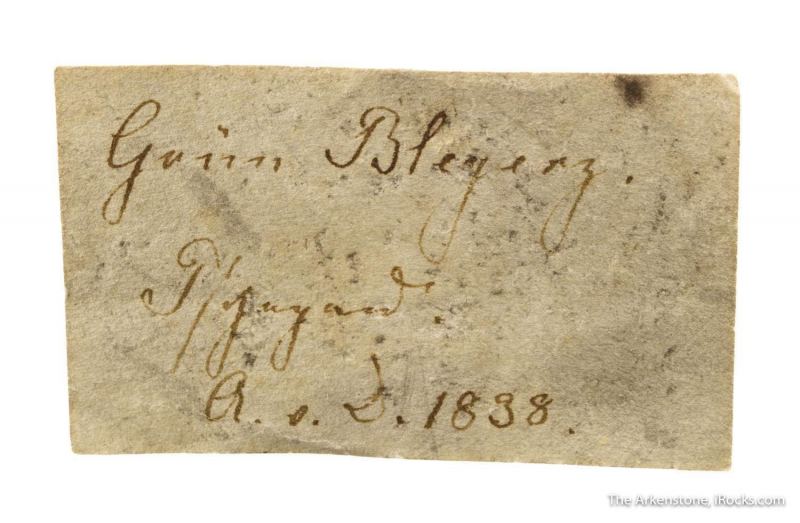 Grün Bleyerz.
A. v. D. 1838.
The Arkenstone, iRocks.com